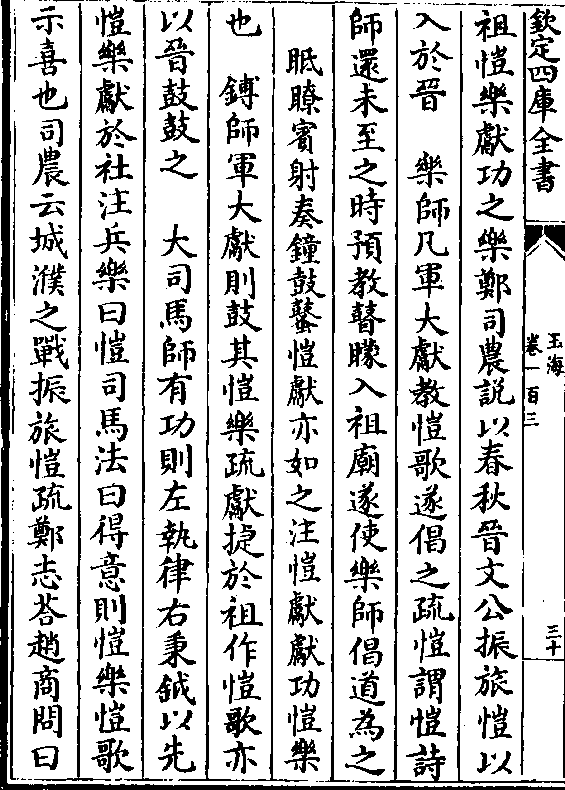 欽定四庫全書
玉海
卷一百三
三十
祖愷樂獻功之樂鄭司農説以春秋晉文公振旅愷以
入於晉　樂師凡軍大獻教愷歌遂倡之疏愷謂愷詩
師還未至之時預教瞽矇入祖廟遂使樂師倡道為之
眡瞭賓射奏鐘鼓鼜愷獻亦如之注愷獻獻功愷樂
也　鎛師軍大獻則鼓其愷樂疏獻捷於祖作愷歌亦
以晉鼓鼓之　大司馬師有功則左執律右秉鉞以先
愷樂獻於社注兵樂曰愷司馬法曰得意則愷樂愷歌
示喜也司農云城濮之戰振旅愷疏鄭志荅趙商問曰